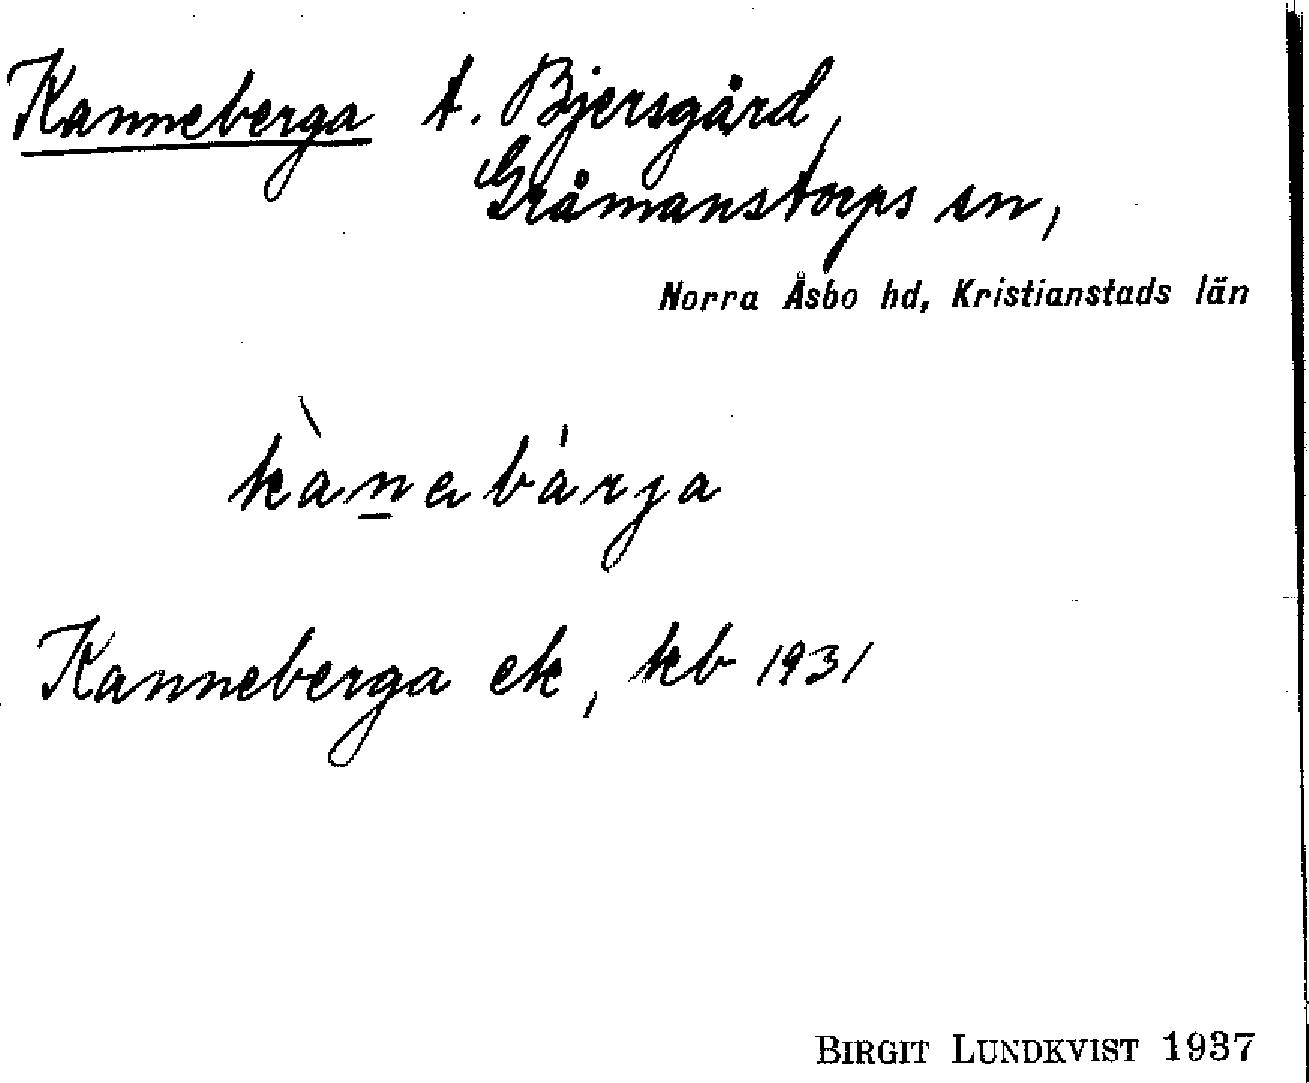 Kanneberga t. Bjersgård,
Gråmanstorps sn,
Norra Åsbo hd, Kristianstads län
kàn̲abárja
Kanneberga ek, kb 1931
BIRGIT LUNDKVIST 1937